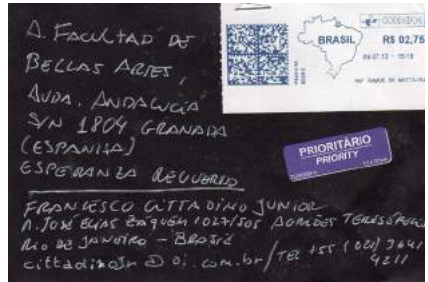 A. FACULTAD DE
BELLAS ARTES,
AVDA. ANDALUCIA
S/N 1804 GRANADA
(ESPANHA)
ESPERANZA RECUERDO
CORREIOS
BRASIL
R$ 02,75
PRIORITÁRIO
PRIORITY
FRANCESCO CITTADINO JUNIOR
R. JOSÉ ELIAS ZAQUÉM 1027/505 AGRIÕES TERESÓPOLIS
RIO DE JANEIRO - BRASIL
cittadinoJr @ oi.com.br / TEL +55 (021) 3641
4211